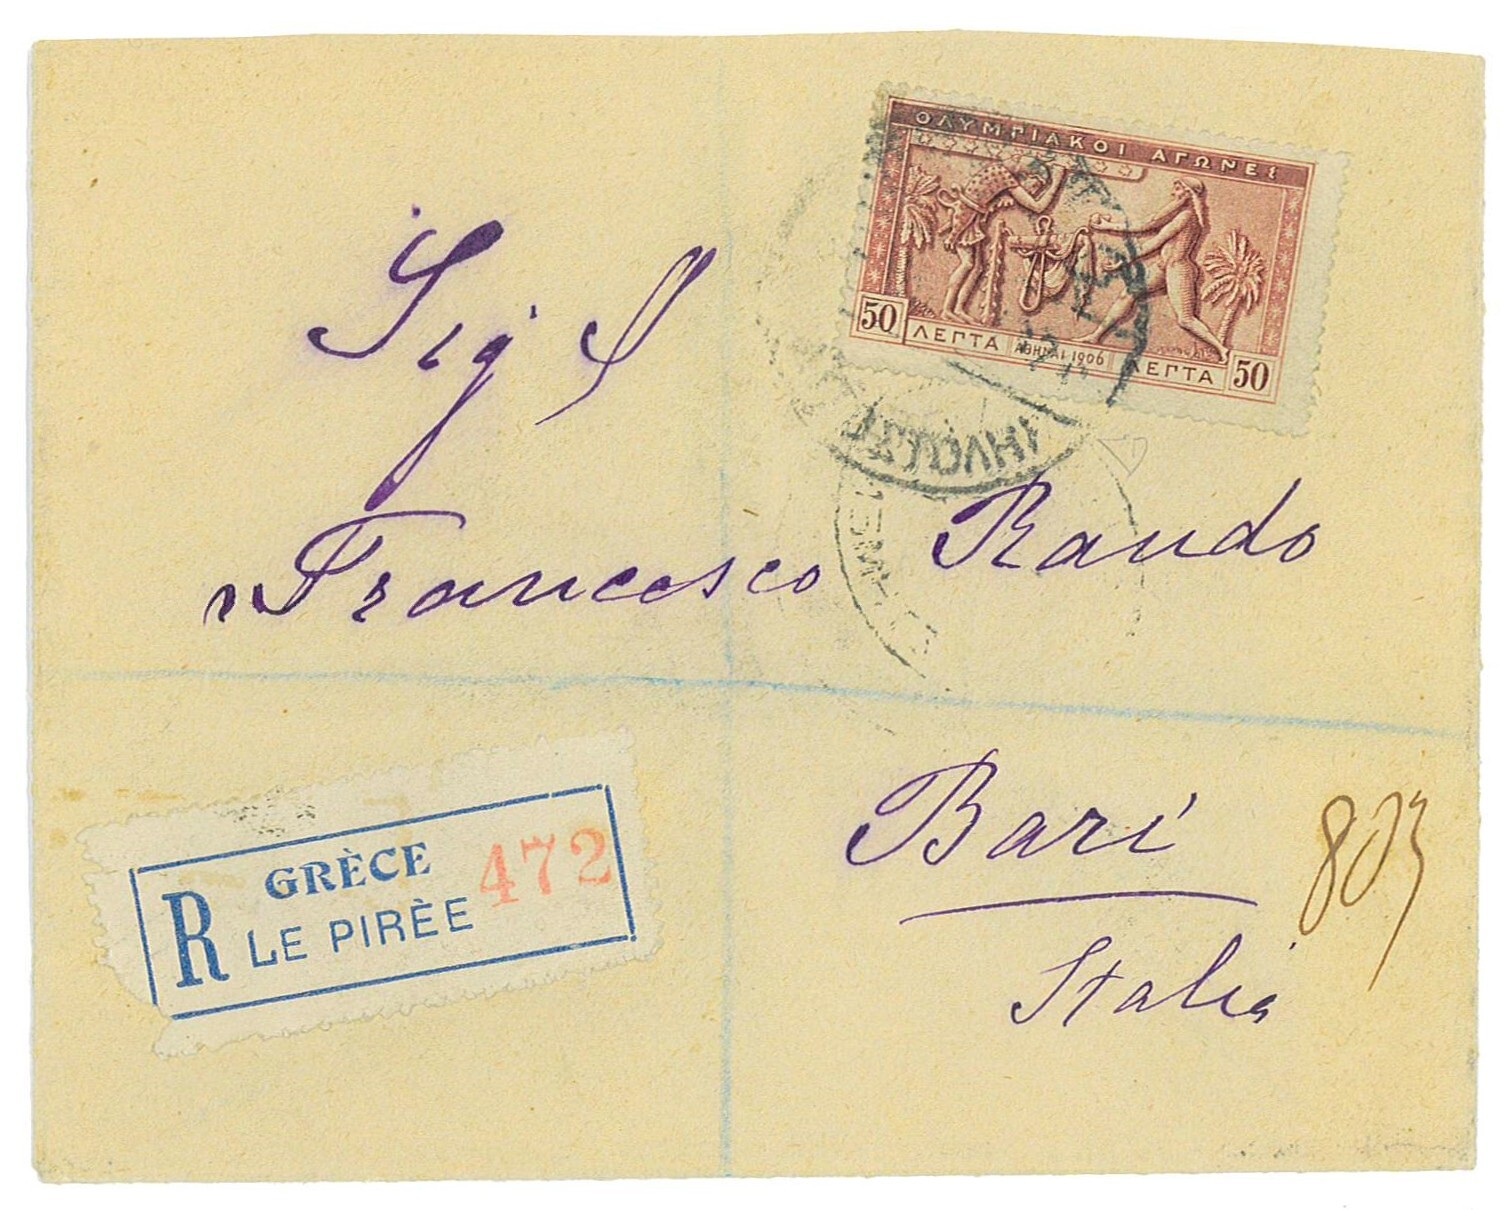 ΟΛΥΜΠΙΑΚΟΙ ΑΓΩΝΕΣ
50 ΛΕΠΤΑ ΑΘΗΝΑΙ 1906 ΛΕΠΤΑ 50
Sig S
Francesco Rando
Bari
Italia
803
GRÈCE 472
R LE PIRÈE